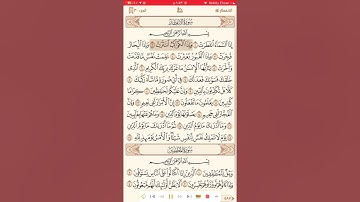 سُورَةُ الانفِطَارِ
بِسْمِ اللَّهِ الرَّحْمَٰنِ الرَّحِيمِ
إِذَا السَّمَاءُ انفَطَرَتْ ١ وَإِذَا الْكَوَاكِبُ انتَثَرَتْ ٢ وَإِذَا الْبِحَارُ
فُجِّرَتْ ٣ وَإِذَا الْقُبُورُ بُعْثِرَتْ ٤ عَلِمَتْ نَفْسٌ مَّا قَدَّمَتْ
وَأَخَّرَتْ ٥ يَٰأَيُّهَا الْإِنسَٰنُ مَا غَرَّكَ بِرَبِّكَ الْكَرِيمِ ٦ الَّذِي
خَلَقَكَ فَسَوَّىٰكَ فَعَدَلَكَ ٧ فِي أَيِّ صُورَةٍ مَّا شَاءَ رَكَّبَكَ
٨ كَلَّا بَلْ تُكَذِّبُونَ بِالدِّينِ ٩ وَإِنَّ عَلَيْكُمْ لَحَٰفِظِينَ ١٠ كِرَامًا
كَٰتِبِينَ ١١ يَعْلَمُونَ مَا تَفْعَلُونَ ١٢ إِنَّ الْأَبْرَارَ لَفِي نَعِيمٍ ١٣
وَإِنَّ الْفُجَّارَ لَفِي جَحِيمٍ ١٤ يَصْلَوْنَهَا يَوْمَ الدِّينِ ١٥ وَمَا هُمْ عَنْهَا بِغَائِبِينَ
١٦ وَمَا أَدْرَىٰكَ مَا يَوْمُ الدِّينِ ١٧ ثُمَّ مَا أَدْرَىٰكَ مَا يَوْمُ الدِّينِ
١٨ يَوْمَ لَا تَمْلِكُ نَفْسٌ لِّنَفْسٍ شَيْئًا وَالْأَمْرُ يَوْمَئِذٍ لِّلَّهِ ١٩
سُورَةُ المُطَفِّفِينَ
بِسْمِ اللَّهِ الرَّحْمَٰنِ الرَّحِيمِ
وَيْلٌ لِّلْمُطَفِّفِينَ ١ الَّذِينَ إِذَا اكْتَالُوا عَلَى النَّاسِ يَسْتَوْفُونَ ٢
وَإِذَا كَالُوهُمْ أَو وَّزَنُوهُمْ يُخْسِرُونَ ٣ أَلَا يَظُنُّ أُولَٰئِكَ أَنَّهُم مَّبْعُوثُونَ ٤